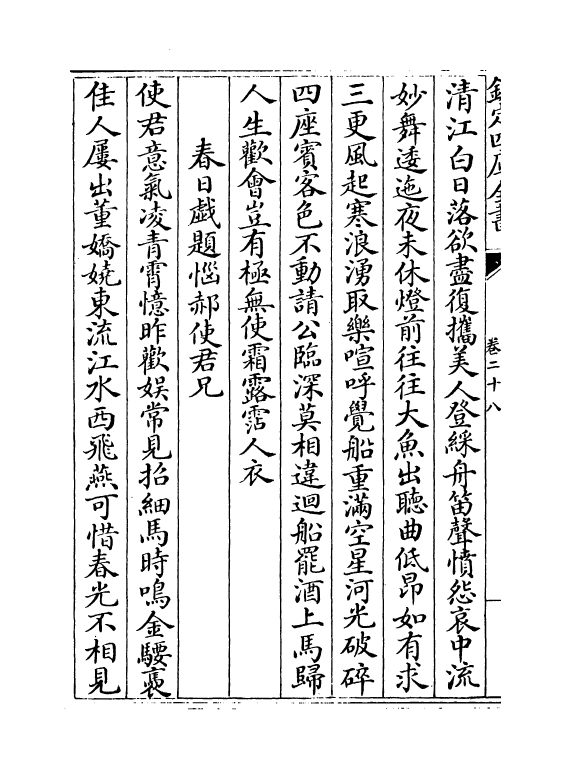 欽定四庫全書
卷二十八
清江白日落欲盡復攜美人登綵舟笛聲憤怨哀中流
妙舞逶迤夜未休燈前往往大魚出聽曲低昂如有求
三更風起寒浪湧取樂喧呼覺船重滿空星河光破碎
四座賓客色不動請公臨深莫相違迴船罷酒上馬歸
人生歡會豈有極無使霜露霑人衣
春日戲題惱郝使君兄
使君意氣凌青霄憶昨歡娛常見招細馬時鳴金騕褭
佳人屢出董嬌嬈東流江水西飛燕可惜春光不相見